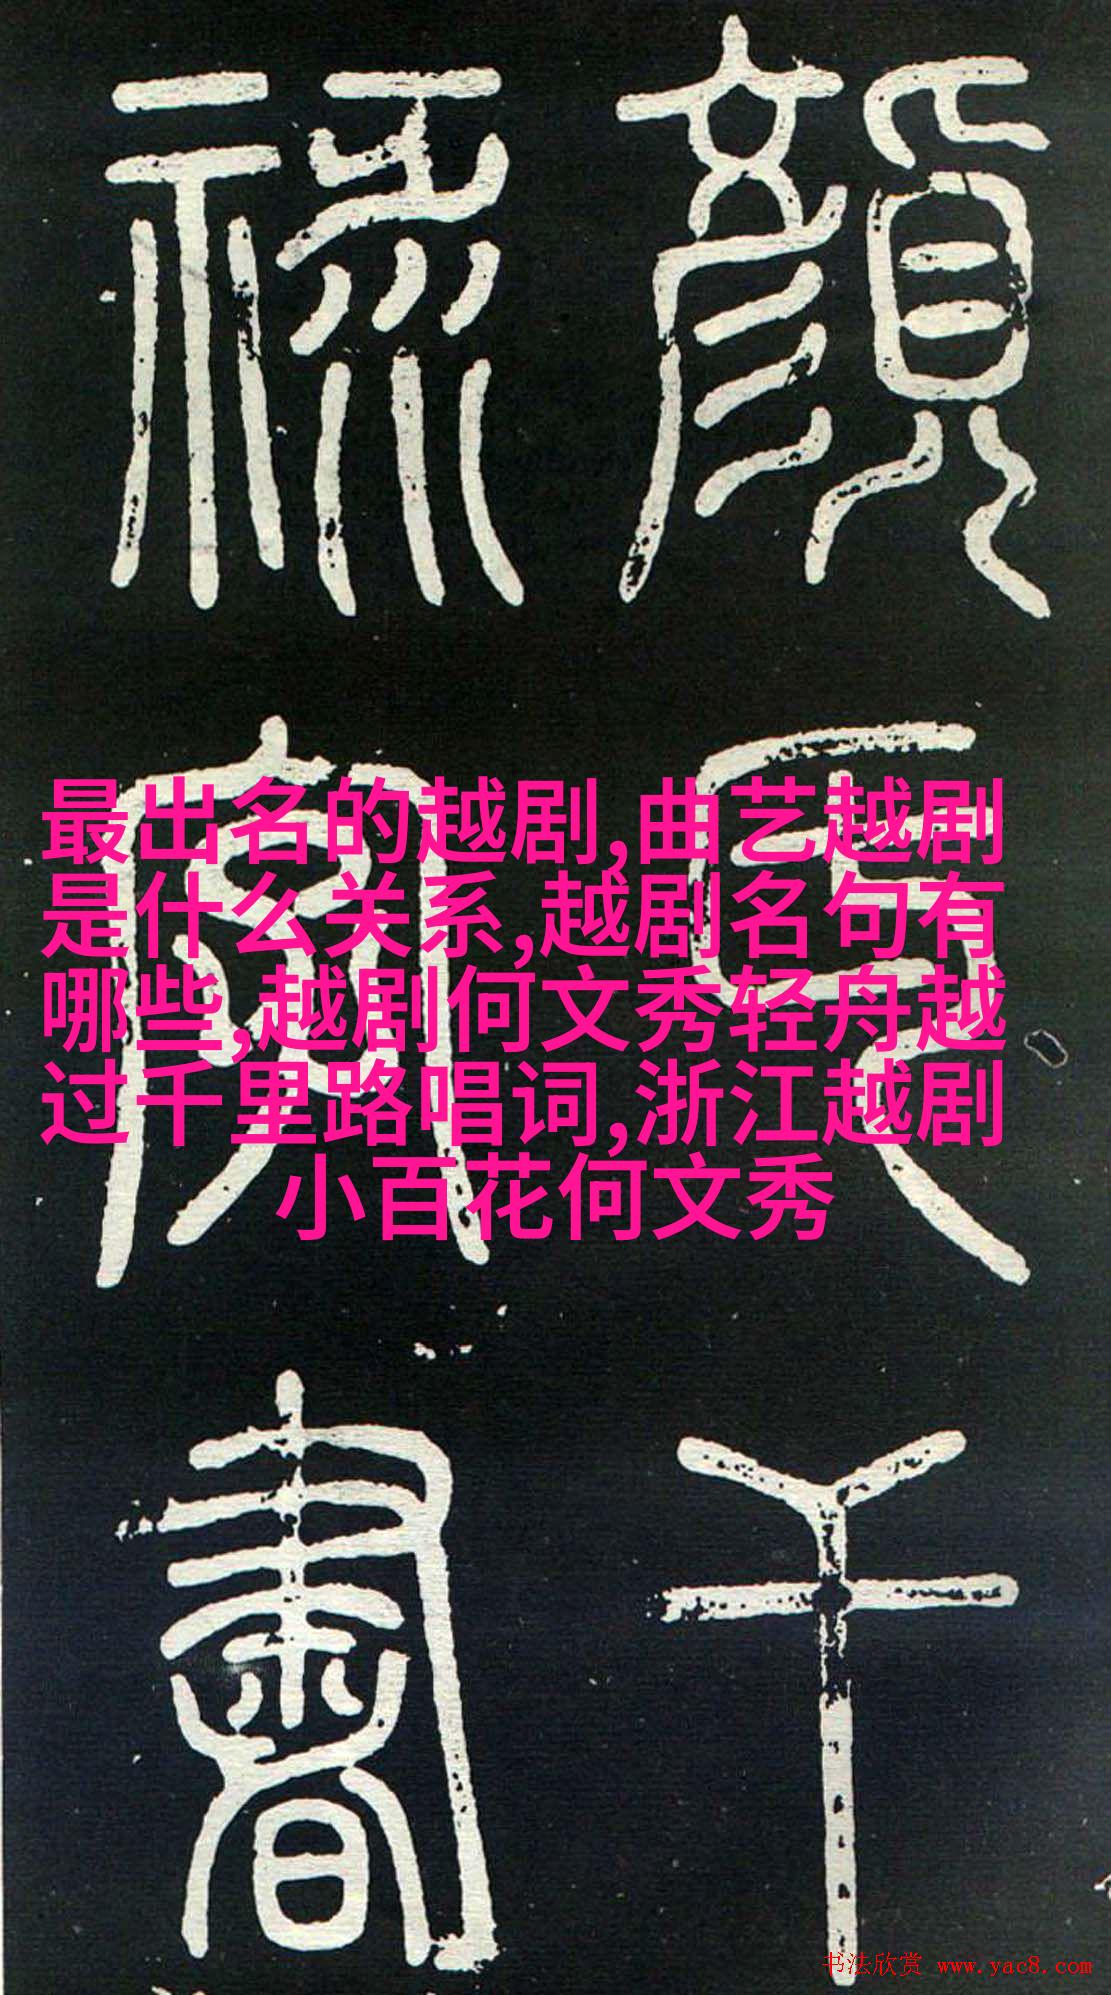 顏氏干
祿字書
最出名的越剧,曲艺越剧
是什么关系,越剧名句有
哪些,越剧何文秀轻舟越
过千里路唱词,浙江越剧
小百花何文秀
书法欣赏 www.yac8.com